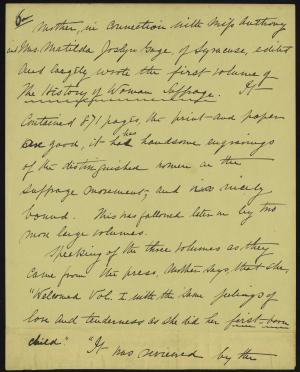 6
Mother, in connection with Miss Anthony
and Mrs. Matilda Joslyn Gage, of Syracuse, edited
and largely wrote the first volume of
The History of Woman Suffrage. It
contained 871 pages, the print and paper
are good, it has handsome engravings
of the distinguished women in the
suffrage movement, and is nicely
bound. This was followed later on by two
more large volumes.
Speaking of the three volumes as they
came from the press, Mother says, that she,
"Welcomed Vol. I with the same feelings of
love and tenderness as she did her first-born
child." "It was reviewed by the